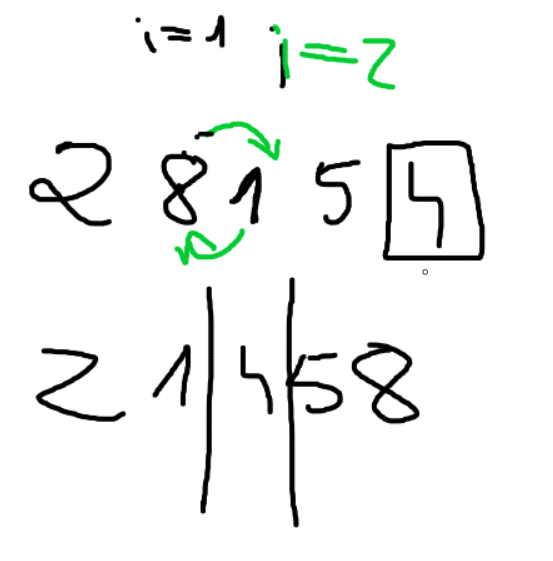 i=1 j=2
2 8 1 5 4
2 1 4 5 8